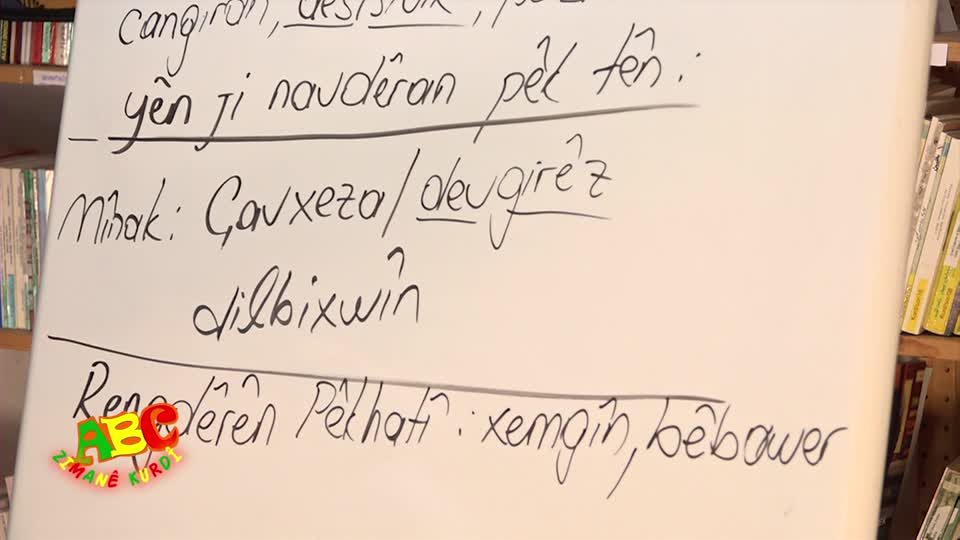 cangiran,
yên ji navdêran pêk tên:
Mînak: Çavxeza/devgirêz
dilbixwîn
Rengdêrên Pêkhatî: xemgîn, bêbawer
ABC
ZIMANÊ KURDÎ